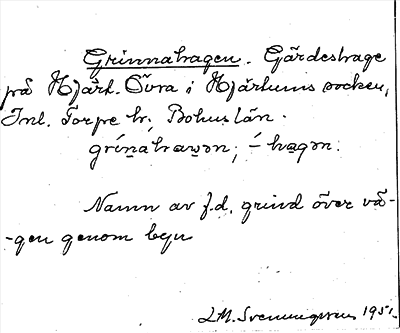 Grinnahagen. Gärdeshage
på Hjärt. Övra i Hjärtums socken,
Inl. Torpe hr, Bohuslän.
grínahawən; ´- hagən.
Namn av f.d. grind över vä-
-gen genom byn
S.M. Svenungsson 1951.